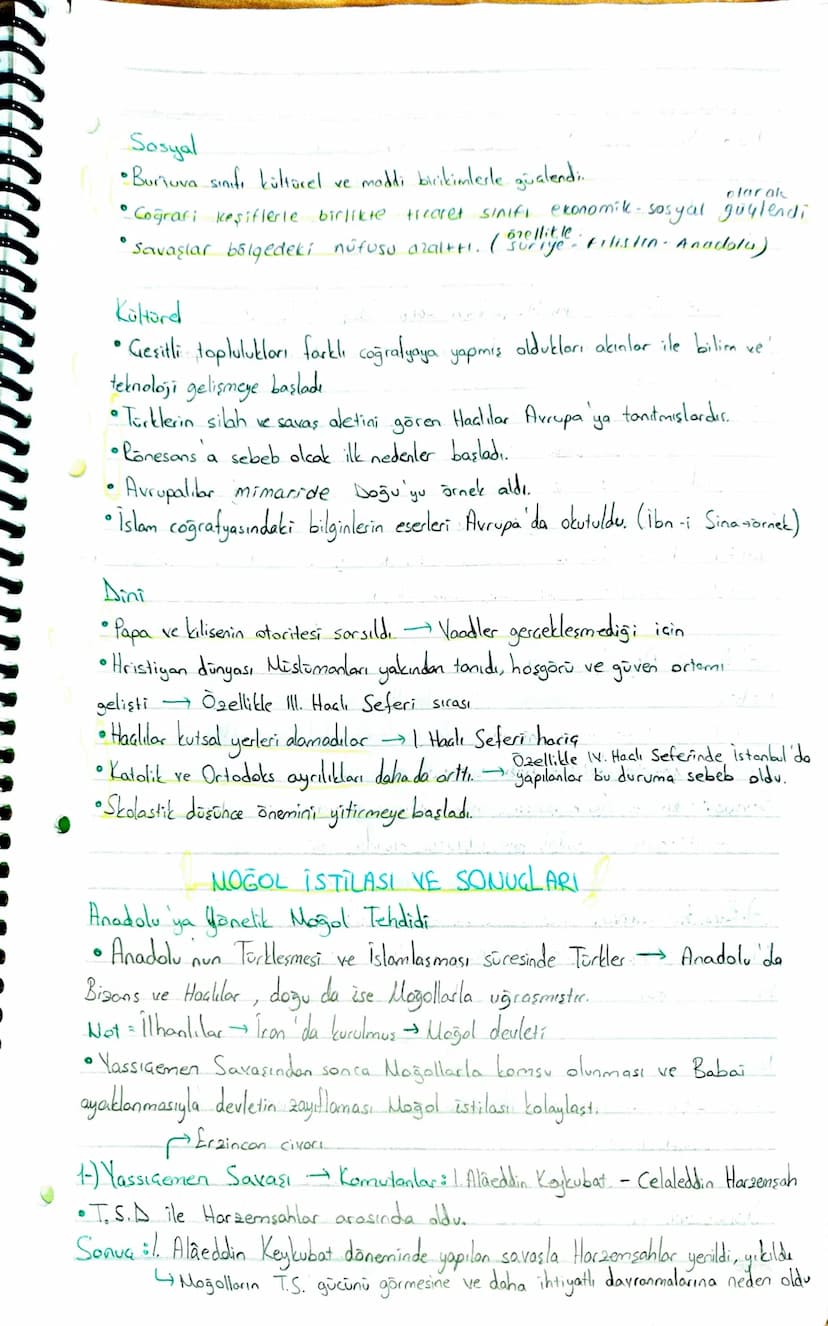 Sosyal
• Burjuva sınıfı kültürel ve maddi birikimlerle güçlendi.
• Coğrafi keşiflerle birlikte ticaret sınıfı ekonomik-sosyal olarak güçlendi
• Savaşlar bölgedeki nüfusu azalttı. (özellikle Suriye - Filistin - Anadolu)
Kültürel
• Çeşitli toplulukları farklı coğrafyaya yapmış oldukları akınlar ile bilim ve
teknoloji gelişmeye başladı
• Türklerin silah ve savaş aletini gören Haçlılar Avrupa'ya tanıtmışlardır.
• Rönesans'a sebeb olcak ilk nedenler başladı.
• Avrupalılar mimaride Doğu'yu örnek aldı.
• İslam coğrafyasındaki bilginlerin eserleri Avrupa'da okutuldu. (İbn-i Sina→örnek)
Dini
• Papa ve kilisenin otoritesi sarsıldı → Vaadler gerçekleşmediği için
• Hristiyan dünyası Müslümanları yakından tanıdı, hoşgörü ve güven ortamı
gelişti → Özellikle III. Haçlı Seferi sırası
• Haçlılar kutsal yerleri alamadılar → I. Haçlı Seferi hariç
• Katolik ve Ortodoks ayrılıkları daha da arttı. → Özellikle IV. Haçlı Seferinde İstanbul'da
yapılanlar bu duruma sebeb oldu.
• Skolastik düşünce önemini yitirmeye başladı.
MOĞOL İSTİLASI VE SONUÇLARI
Anadolu'ya Yönelik Moğol Tehdidi
• Anadolu'nun Türkleşmesi ve İslamlaşması süresinde Türkler → Anadolu'da
Bizans ve Haçlılar, doğu da ise Moğollarla uğraşmıştır.
Not = İlhanlılar → İran'da kurulmuş → Moğol devleti
• Yassıçemen Savaşından sonra Moğollarla komşu olunması ve Babai
ayaklanmasıyla devletin zayıflaması Moğol istilası kolaylaştı.
→ Erzincan civarı
1-) Yassıçemen Savaşı → Komutanlar: I. Alâeddin Keykubat - Celaleddin Harzemşah
• T.S.D ile Harzemşahlar arasında oldu.
Sonuç: I. Alâeddin Keykubat döneminde yapılan savaşla Harzemşahlar yenildi, yıkıldı
↳ Moğolların T.S. gücünü görmesine ve daha ihtiyatlı davranmalarına neden oldu